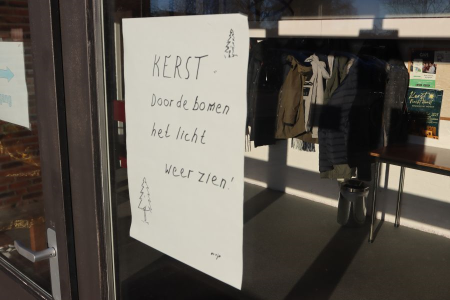 KERST -
Door de bomen
het licht
weer zien!
Kerst